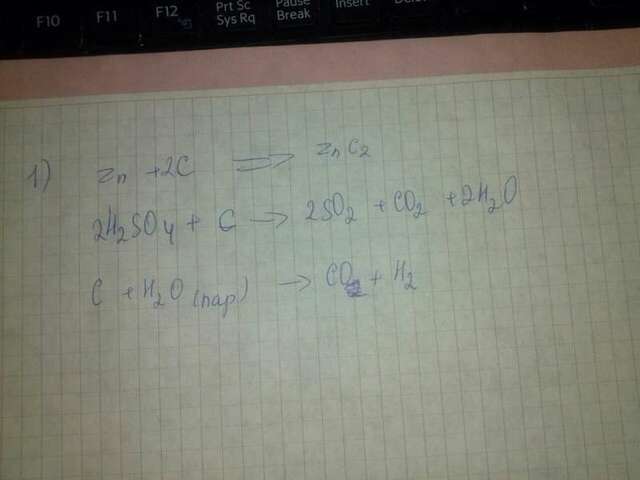 F10 F11 F12 Prt Sc Sys Rq Pause Break Insert
1) Zn + 2C ⟹ ZnC2
2H2SO4 + C → 2SO2 + CO2 + 2H2O
C + H2O (пар) → CO + H2